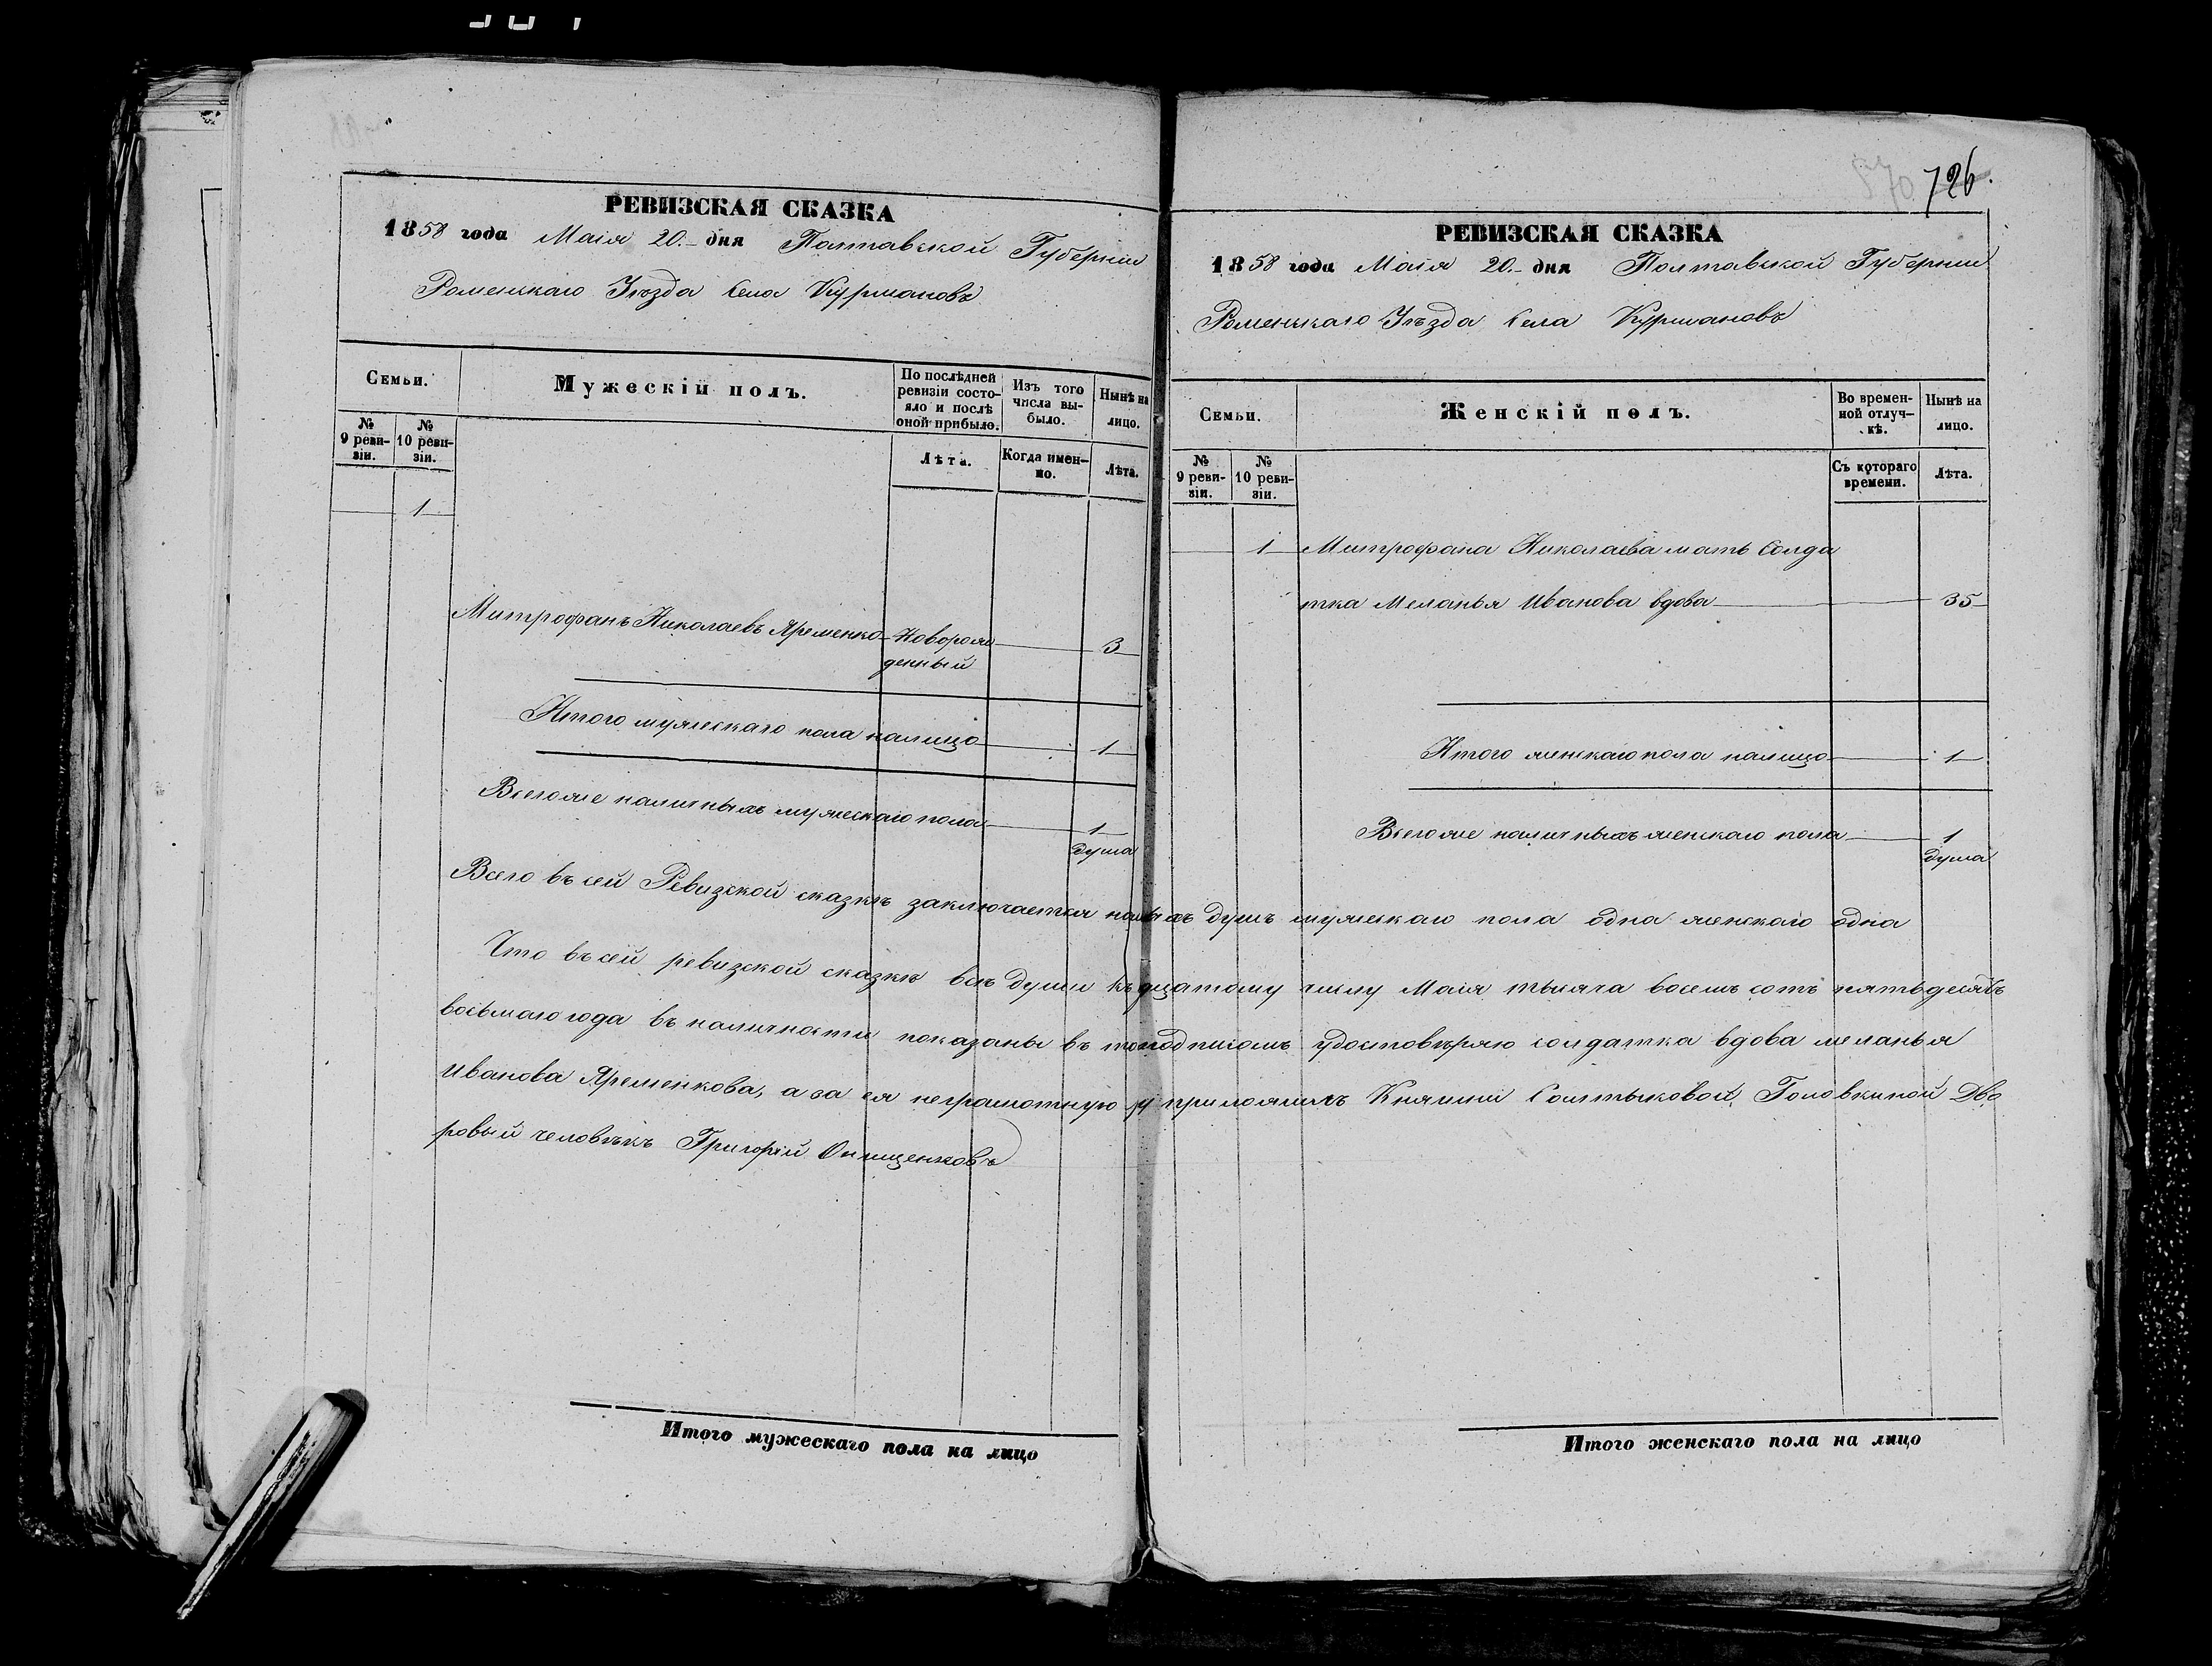 726.
РЕВИЗСКАЯ СКАЗКА
1858 года Маія 20.- дня Полтавской Губерніи
Роменскаго Уѣзда Села Курмановъ
Семьи.
Мужескій полъ.
По послѣдней ревизіи состояло и послѣ оной прибыло.
Изъ того числа выбыло.
Нынѣ на лицо.
№ 9 ревизіи.
№ 10 ревизіи.
Лѣта.
Когда именно.
Лѣта.
1
Митрофанъ Николаевъ Яременко Новорож 3
денный
Итого мужескаго пола налицо 1
Всего же наличныхъ мужескаго пола 1
душа
РЕВИЗСКАЯ СКАЗКА
1858 года Маія 20.- дня Полтавской Губерніи
Роменскаго Уѣзда Села Курмановъ
Семьи.
Женскій полъ.
Во временной отлучкѣ.
Нынѣ на лицо.
№ 9 ревизіи.
№ 10 ревизіи.
Съ котораго времени.
Лѣта.
1 Митрофана Николаева мать Солда
тка Меланья Иванова вдова 35
Итого женскаго пола налицо 1
Всего же наличныхъ женскаго пола 1
душа
Всего въ сей Ревизской сказкѣ заключается душъ мужескаго пола одна женскаго одна
Что въ сей ревизской сказкѣ всѣ души къ числу Маія тысяча восемь сотъ пятьдесятъ
восьмаго года въ наличности показаны въ томъ удостовѣряю солдатка вдова меланья
Иванова Яременкова, а за ея неграмотную Княгини Солтыковой, Головкиной Дво
ровый человѣкъ Григорій Онищенковъ
Итого мужескаго пола на лицо
Итого женскаго пола на лицо